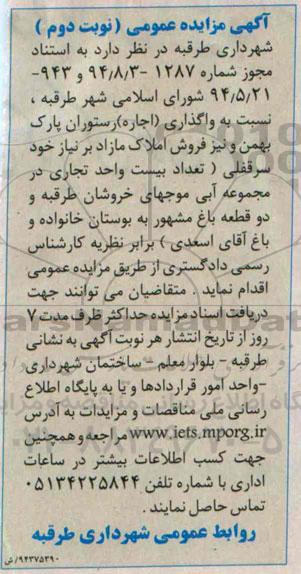 آگهی مزایده عمومی ( نوبت دوم )
شهرداری طرقبه در نظر دارد به استناد
مجوز شماره ۱۲۸۷ -۹۴٫۸٫۳ و ۹۴۳-
۹۴٫۵٫۲۱ شورای اسلامی شهر طرقبه ،
نسبت به واگذاری (اجاره)رستوران پارک
بهمن و نیز فروش املاک مازاد بر نیاز خود
سرقفلی ( تعداد بیست واحد تجاری در
مجموعه آبی موجهای خروشان طرقبه و
دو قطعه باغ مشهور به بوستان خانواده و
باغ آقای اسعدی ) برابر نظریه کارشناس
رسمی دادگستری از طریق مزایده عمومی
اقدام نماید . متقاضیان می توانند جهت
دریافت اسناد مزایده حداکثر ظرف مدت ۷
روز از تاریخ انتشار هر نوبت آگهی به نشانی
طرقبه - بلوار معلم - ساختمان شهرداری
-واحد امور قراردادها و یا به پایگاه اطلاع
رسانی ملی مناقصات و مزایدات به آدرس
www.iets.mporg.ir مراجعه و همچنین
جهت کسب اطلاعات بیشتر در ساعات
اداری با شماره تلفن ۰۵۱۳۴۲۲۵۸۴۴
تماس حاصل نمایند .
روابط عمومی شهرداری طرقبه
۹۴۳۷۵۳۹۰/ش